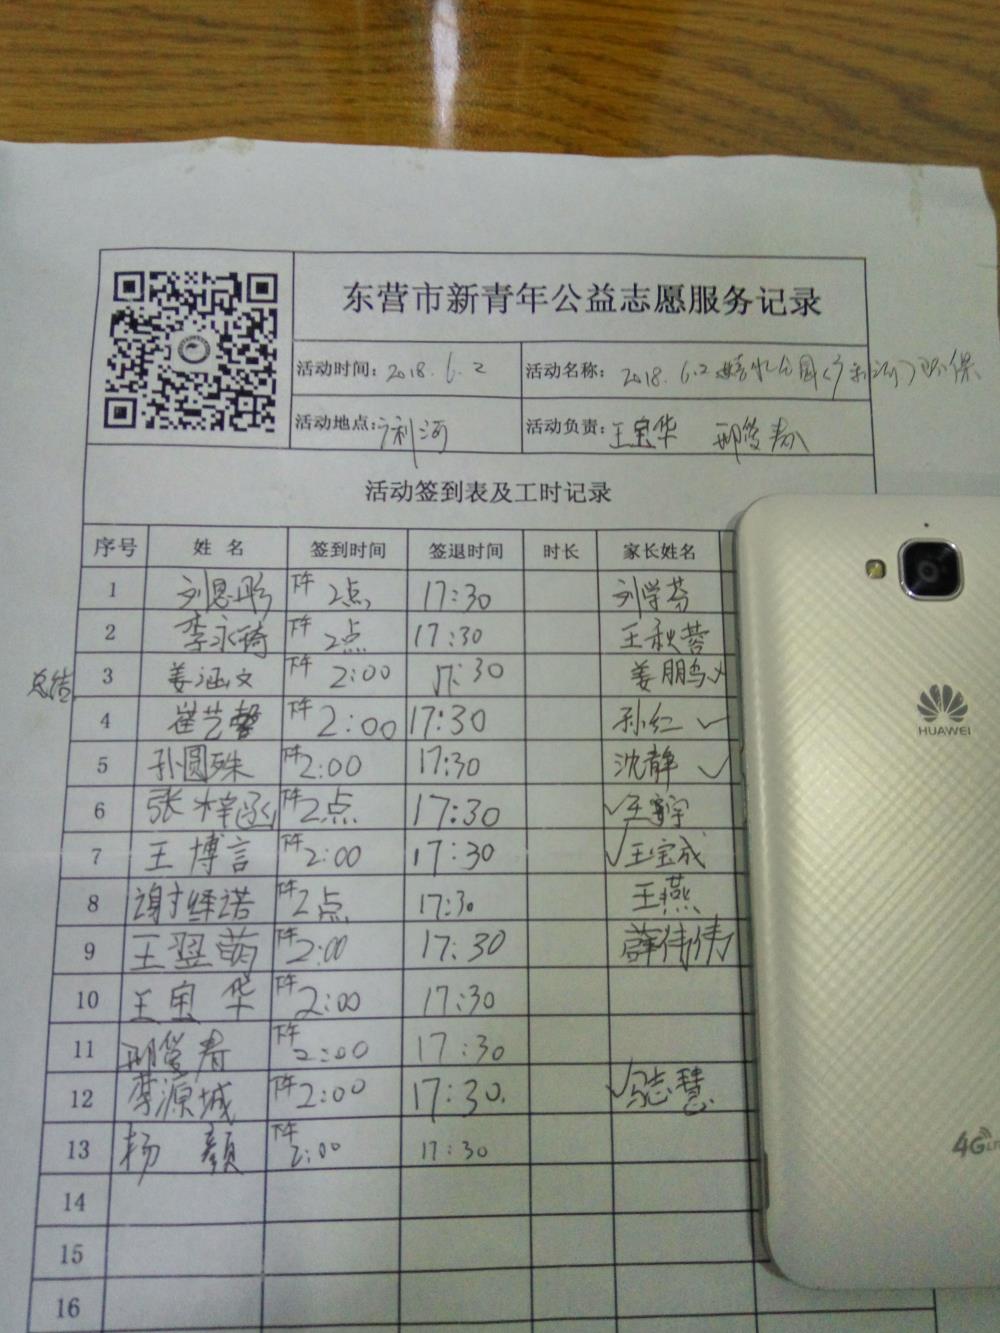 东营市新青年公益志愿服务记录
活动时间：2018.6.2 活动名称：2018.6.2 公园（广利河）环保
活动地点：广利河 活动负责：王宝华 邢爱春
活动签到表及工时记录
序号 姓名 签到时间 签退时间 时长 家长姓名
1 刘恩彤 下午2点 17:30 刘学芬
2 李永琦 下午2点 17:30 王秋蓉
总结 3 姜涵文 下午2:00 17:30 姜鹏鸟
4 崔艺馨 下午2:00 17:30 孙红 ✓
5 孙圆殊 下午2:00 17:30 沈静 ✓
6 张梓函 下午2点 17:30 ✓王宇
7 王博言 下午2:00 17:30 ✓王宝成
8 谢绎诺 下午2点 17:30 王燕
9 王翌萌 下午2:00 17:30 薛伟伟
10 王宝华 下午2:00 17:30
11 邢爱春 下午2:00 17:30
12 李源城 下午2:00 17:30. ✓志慧
13 杨颜 下午2:00 17:30
14
15
16
HUAWEI
4G LTE